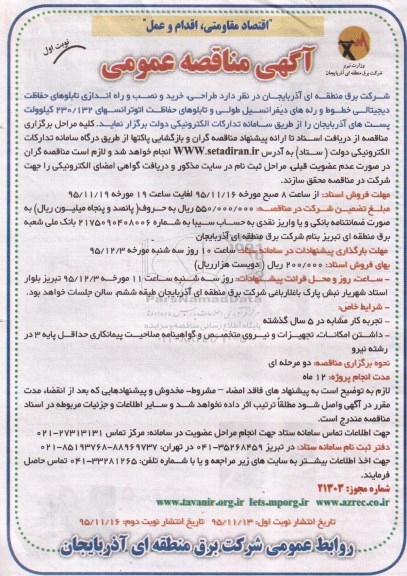 "اقتصاد مقاومتی، اقدام و عمل"
نوبت اول
وزارت نیرو
شرکت برق منطقه ای آذربایجان
آگهی مناقصه عمومی
شرکت برق منطقه ای آذربایجان در نظر دارد طراحی، خرید و نصب و راه اندازی تابلوهای حفاظت
دیجیتالی خطوط و رله های دیفرانسیل طولی و تابلوهای حفاظت اتوترانسهای ۲۳۰/۱۳۲ کیلوولت
پست های آذربایجان را از طریق سامانه تدارکات الکترونیکی دولت برگزار نماید. کلیه مراحل برگزاری
مناقصه از دریافت اسناد تا ارائه پیشنهاد مناقصه گران و بازگشایی پاکتها از طریق درگاه سامانه تدارکات
الکترونیکی دولت ( ستاد) به آدرس WWW.setadiran.ir انجام خواهد شد و لازم است مناقصه گران
در صورت عدم عضویت قبلی، مراحل ثبت نام در سایت مذکور و دریافت گواهی امضای الکترونیکی را جهت
شرکت در مناقصه محقق سازند.
مهلت فروش اسناد: از ساعت ۸ صبح مورخه ۹۵/۱۱/۱۶ لغایت ساعت ۱۹ مورخه ۹۵/۱۱/۱۹
مبلغ تضمین شرکت در مناقصه: ۵۵۰/۰۰۰/۰۰۰ ریال به حروف( پانصد و پنجاه میلیون ریال) به
صورت ضمانتنامه بانکی و یا واریز نقدی به حساب سیبا به شماره ۲۱۷۵۰۹۰۴۰۸۰۰۶ بانک ملی شعبه
برق منطقه ای تبریز بنام شرکت برق منطقه ای آذربایجان
مهلت بارگذاری پیشنهادات در سامانه ستاد: ساعت ۱۰ روز سه شنبه مورخه ۹۵/۱۲/۳
بهای فروش اسناد: ۲۰۰/۰۰۰ ریال (دویست هزارریال)
- ساعت، روز و محل قرائت پیشنهادات: روز سه شنبه ساعت ۱۱ مورخه ۹۵/۱۲/۳ تبریز بلوار
استاد شهریار نبش پارک باغلارباغی شرکت برق منطقه ای آذربایجان طبقه ششم، سالن جلسات خواهد بود.
- شرایط خاص:
- تجربه کار مشابه در ۵ سال گذشته
- داشتن امکانات، تجهیزات و نیروی متخصص و گواهینامه صلاحیت پیمانکاری حداقل پایه ۳ در
رشته نیرو
نحوه برگزاری مناقصه: دو مرحله ای
مدت انجام پروژه: ۱۲ ماه
لازم به توضیح است به پیشنهاد های فاقد امضاء – مشروط- مخدوش و پیشنهادهایی که بعد از انقضاء مدت
مقرر در آگهی واصل شود مطلقاً ترتیب اثر داده نخواهد شد و سایر اطلاعات و جزئیات مربوطه در اسناد
مناقصه مندرج است.
جهت اطلاعات تماس سامانه ستاد جهت انجام مراحل عضویت در سامانه: مرکز تماس ۲۷۳۱۳۱۳۱-۰۲۱
دفتر ثبت نام سامانه ستاد در تبریز: ۳۵۲۶۸۴۵۹-۰۴۱ در تهران: ۸۸۹۶۹۷۳۷-۸۵۱۹۳۷۶۸-۰۲۱
جهت اخذ اطلاعات بیشتر به سایت های زیر مراجعه و یا با شماره تلفن: ۳۳۲۸۱۲۶۵-۰۴۱ تماس حاصل
فرمایند.
شماره مجوز: ۲۱۳۰۳
www.tavanir.org.ir Iets.mporg.ir www.azrec.co.ir
تاریخ انتشار نوبت اول: ۹۵/۱۱/۱۳ تاریخ انتشار نوبت دوم: ۹۵/۱۱/۱۶
روابط عمومی شرکت برق منطقه ای آذربایجان